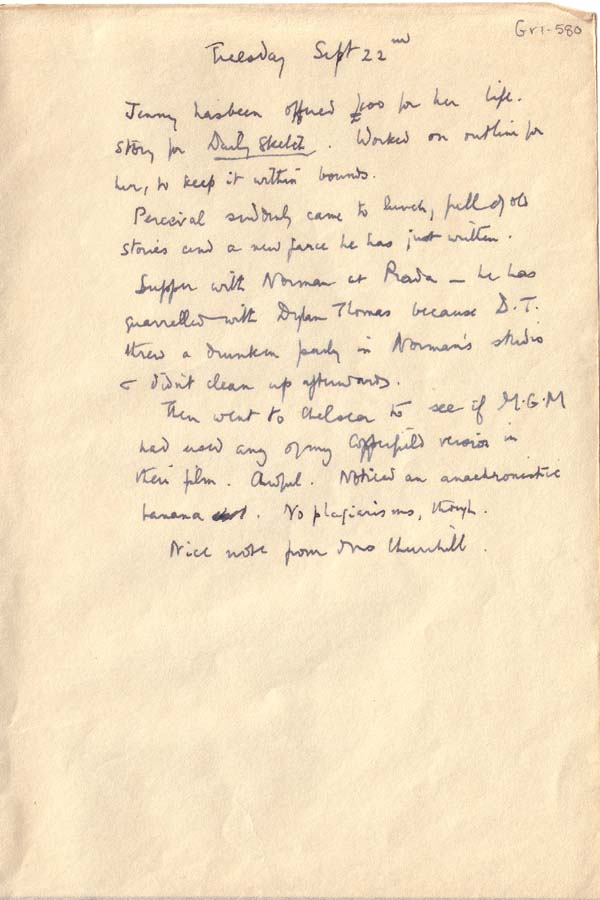 Gr1-580
Tuesday Sept 22nd
Jenny has been offered £100 for her life.
story for Daily Sketch. Worked on outline for
her, to keep it within bounds.
Percival suddenly came to lunch, full of old
stories and a new farce he has just written.
Supper with Norman at Prada – he has
quarrelled with Dylan Thomas because D.T.
threw a drunken party in Norman's studio
& didn't clean up afterwards.
Then went to Chelsea to see if M.G.M
had used any of my Copperfield version in
their film. Awful. Noticed an anachronistic
banana. No plagiarisms, though.
Nice note from Mrs Churchill.